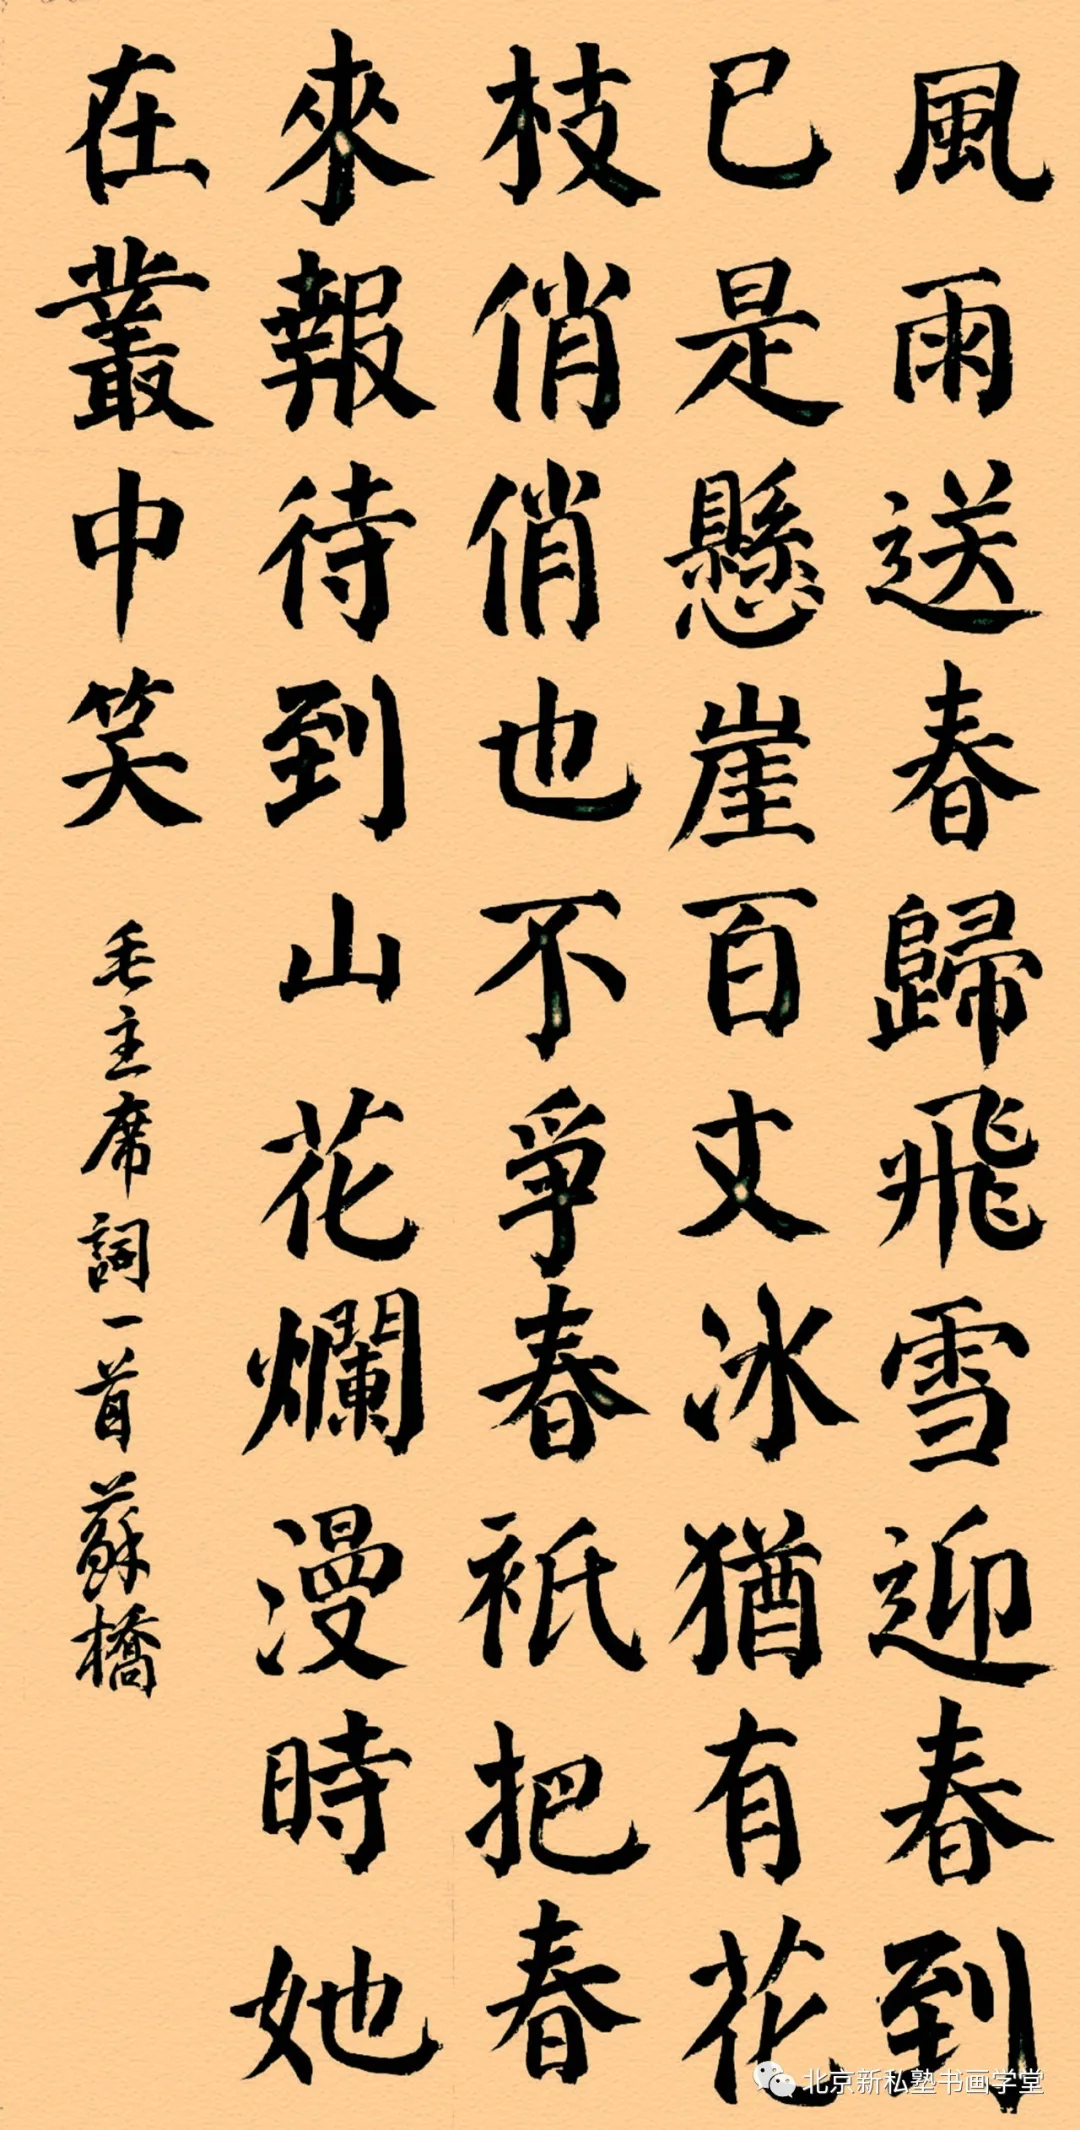 風雨送春歸飛雪迎春到
已是懸崖百丈冰猶有花
枝俏俏也不爭春祇把春
來報待到山花爛漫時她
在叢中笑
毛主席詞一首蘇橋
北京新私塾书画学堂